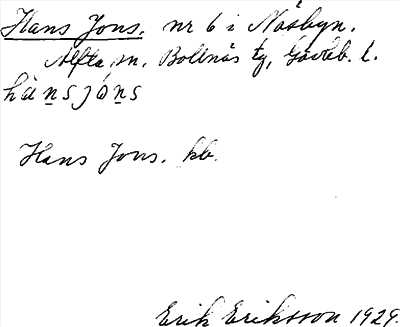 Hans Jons, nr 6 i Näsbyn.
Alfta sn. Bollnäs tg, Gävleb. l.
hànsjóns
Hans Jons. kb.
Erik Eriksson 1929.